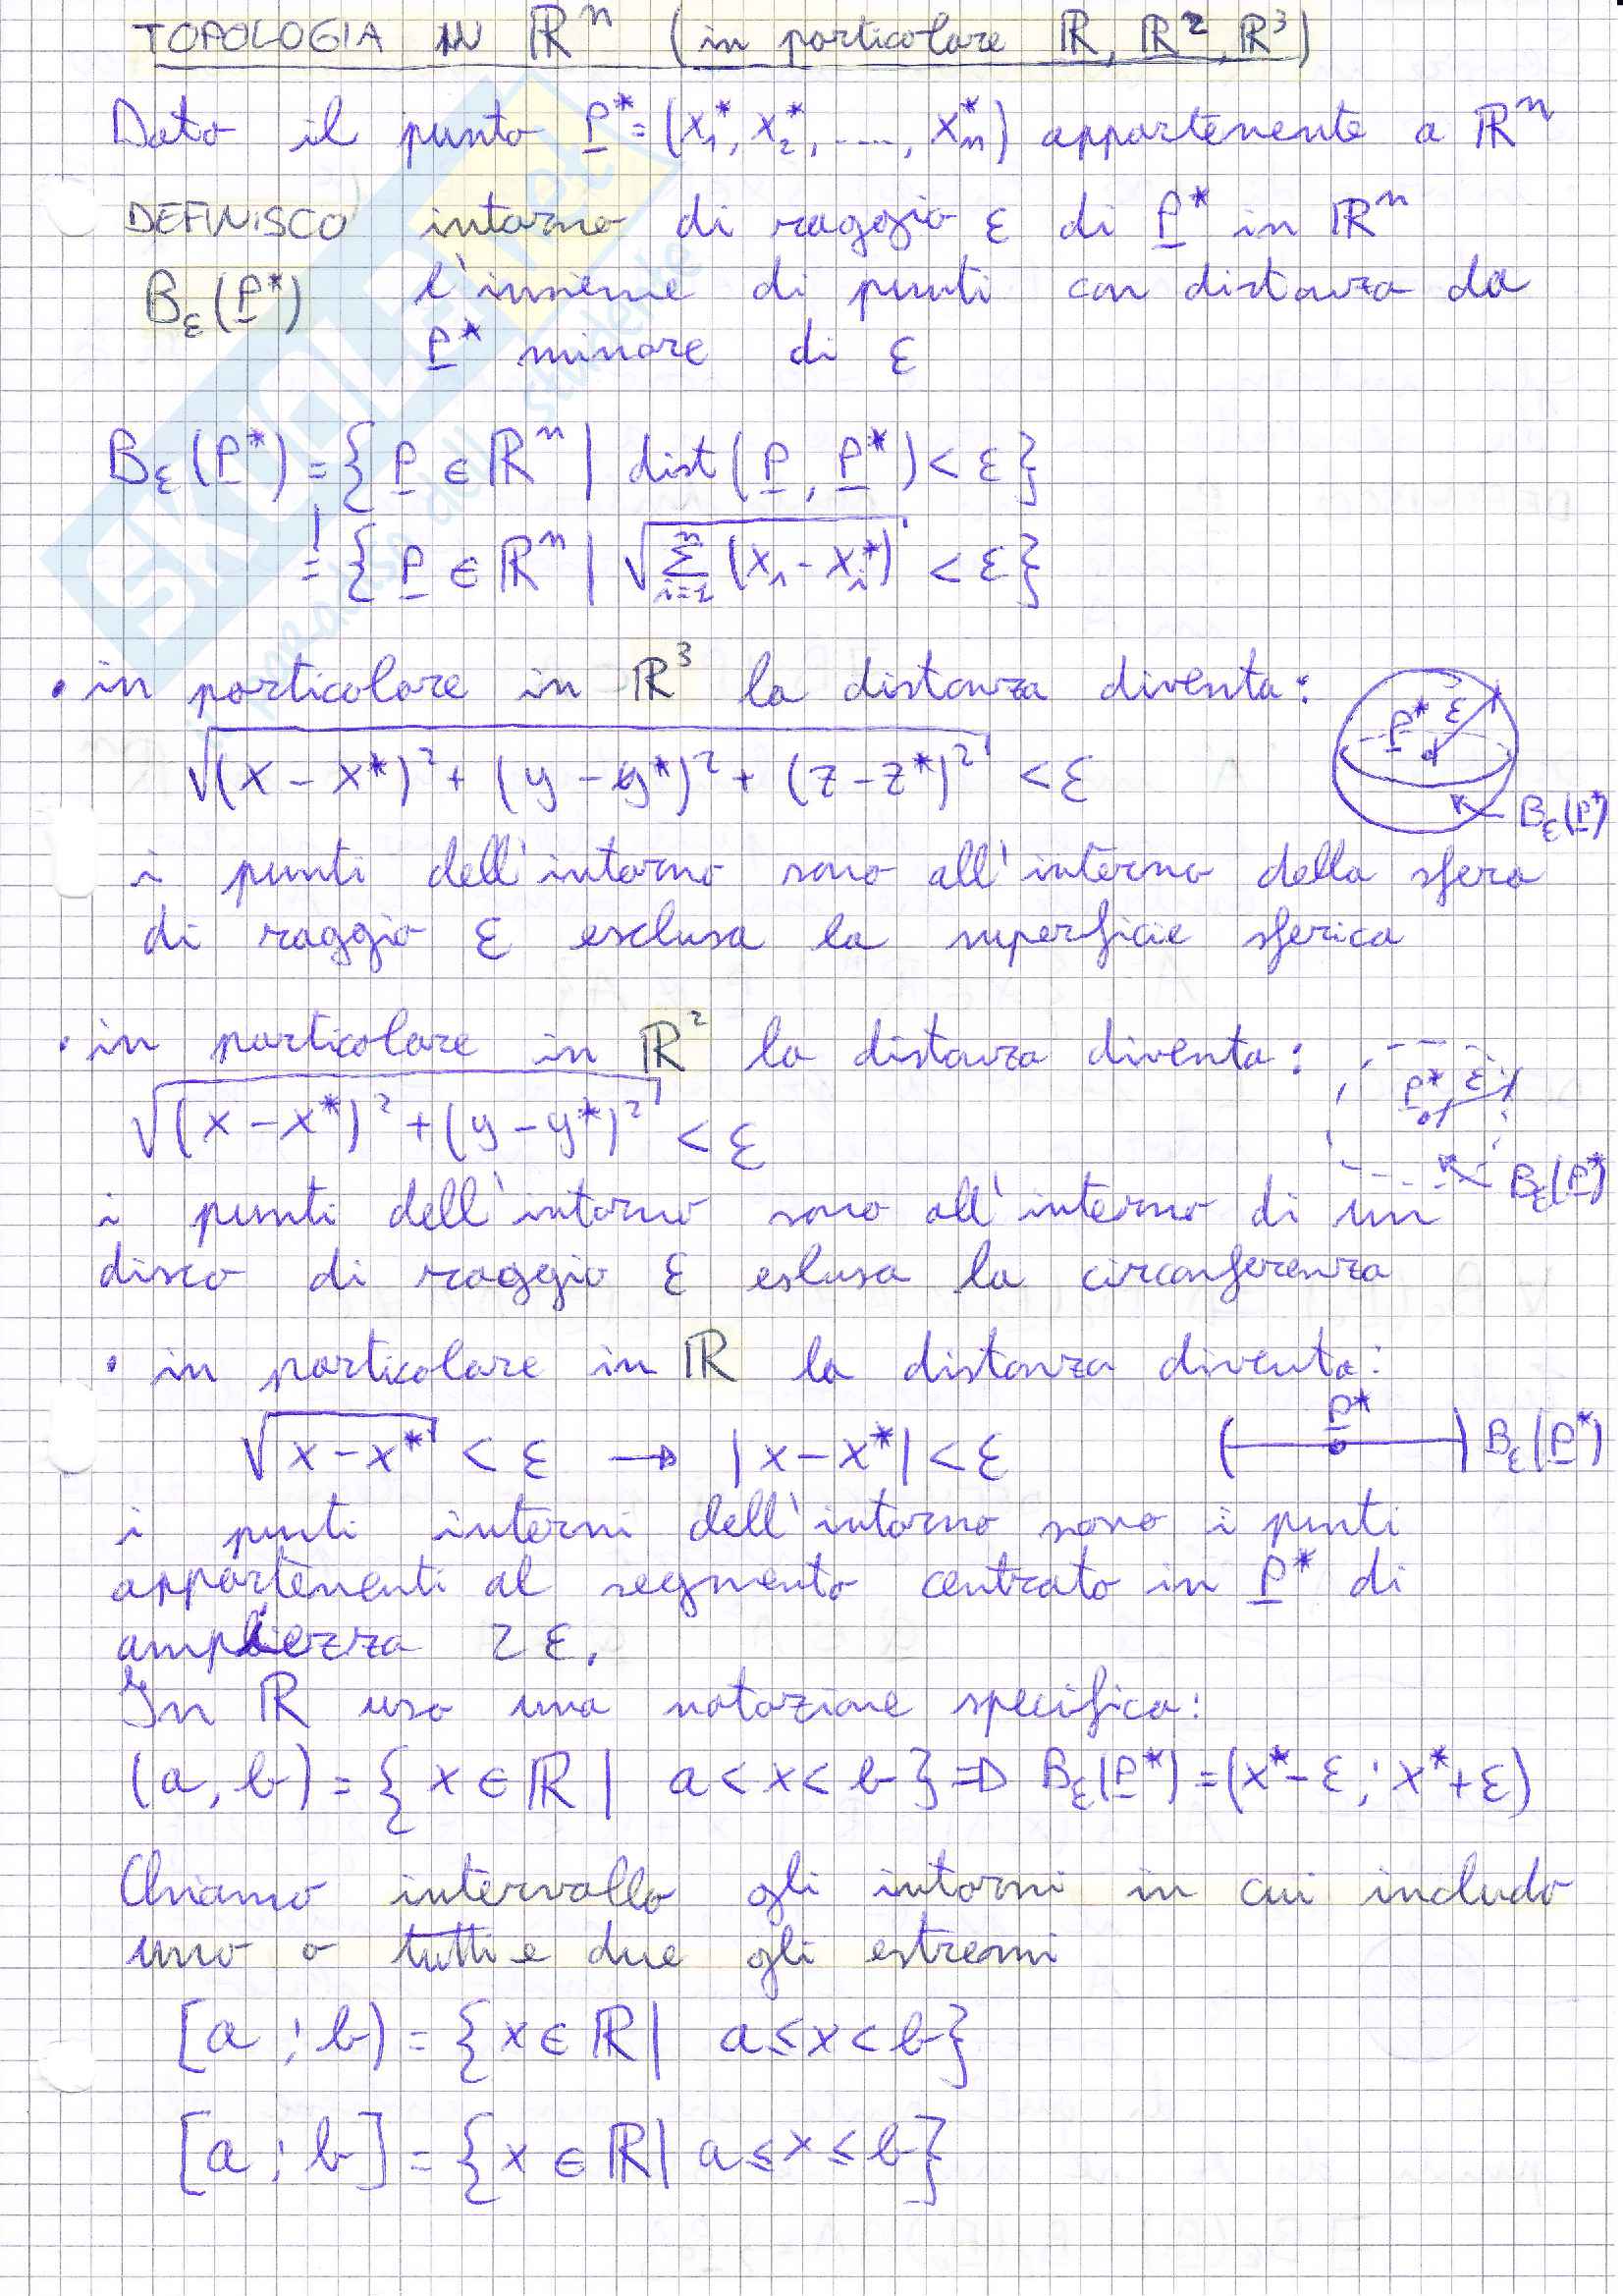 TOPOLOGIA IN ℝⁿ (in particolare ℝ, ℝ², ℝ³)
Dato il punto P* = (x₁*, x₂*, ...., xₙ*) appartenente a ℝⁿ
DEFINISCO intorno di raggio ε di P* in ℝⁿ
Bε(P*) l'insieme di punti con distanza da
P* minore di ε
Bε(P*) = {P ∈ ℝⁿ | dist(P, P*) < ε}
= {P ∈ ℝⁿ | √Σⁿᵢ₌₁ (xᵢ - xᵢ*) < ε}
• in particolare in ℝ³ la distanza diventa:
√(x - x*)² + (y - y*)² + (z - z*)² < ε
P* ε
Bε(P*)
i punti dell'intorno sono all'interno della sfera
di raggio ε esclusa la superficie sferica
• in particolare in ℝ² la distanza diventa:
√(x - x*)² + (y - y*)² < ε
P* ε
Bε(P*)
i punti dell'intorno sono all'interno di un
disco di raggio ε eslusa la circonferenza
• in particolare in ℝ la distanza diventa:
√x - x* < ε → |x - x*| < ε
P*
Bε(P*)
i punti interni dell'intorno sono i punti
appartenenti al segmento centrato in P* di
ampiezza 2ε.
In ℝ uso una notazione specifica:
(a, b) = {x ∈ ℝ | a < x < b} ⇒ Bε(P*) = (x* - ε ; x* + ε)
Chiamo intervallo gli intorni in cui includo
uno o tutti e due gli estremi
[a ; b) = {x ∈ ℝ | a ≤ x < b}
[a ; b] = {x ∈ ℝ | a ≤ x ≤ b}
SKUOLA.net